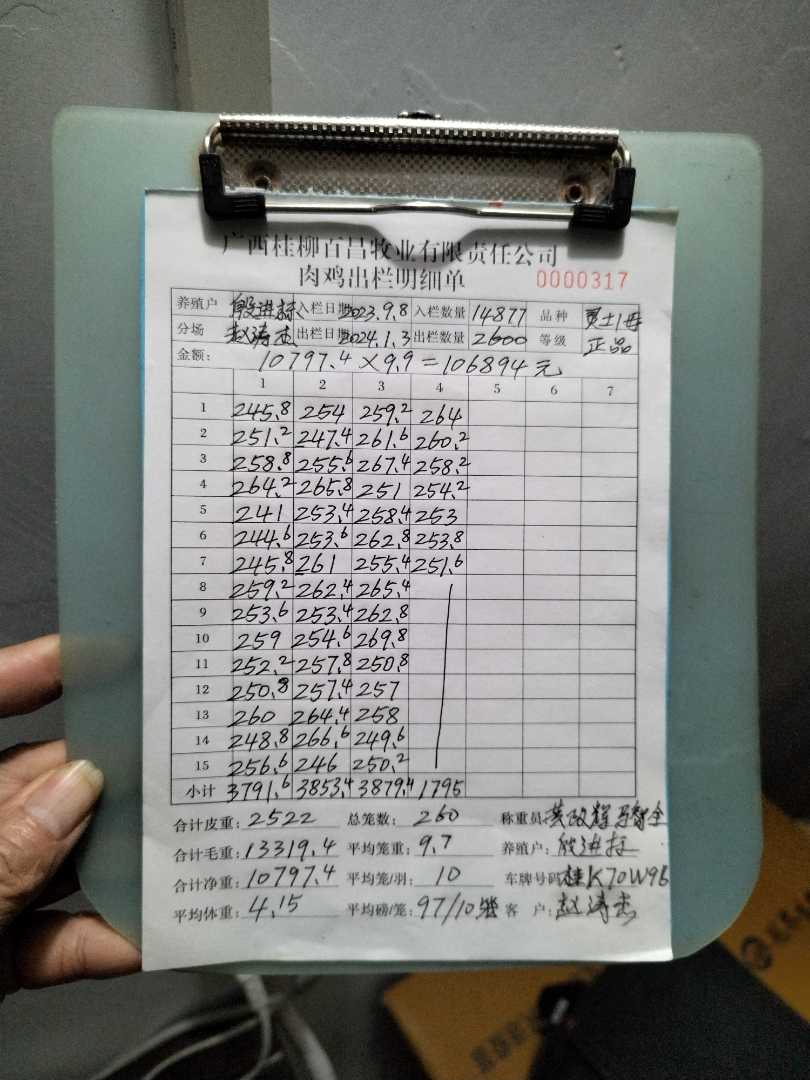 广西桂柳百昌牧业有限责任公司
肉鸡出栏明细单 0000317
养殖户 殷进标 入栏日期 2023.9.8 入栏数量 14877 品种
分场 赵涛杰 出栏日期 2024.1.3 出栏数量 2600 等级 正品
金额: 10797.4×9.9=106894元
1 2 3 4 5 6 7
1 245.8 254 259.2 264
2 251.2 247.4 261.6 260.2
3 258.8 255.6 267.4 258.2
4 264.2 265.8 251 254.2
5 241 253.4 258.4 253
6 244.6 253.6 262.8 253.8
7 245.8 261 255.4 251.6
8 259.2 262.4 265.4
9 253.6 253.4 262.8
10 259 254.6 269.8
11 252.2 257.8 250.8
12 250.8 257.4 257
13 260 264.4 258
14 248.8 266.6 249.6
15 256.6 246 250.2
小计 3791.6 3853.4 3879.4 1795
合计皮重: 2522 总笼数: 260 称重员:
合计毛重: 13319.4 平均笼重: 9.7 养殖户: 殷进标
合计净重: 10797.4 平均笼/羽: 10 车牌号码: 桂K70W96
平均体重: 4.15 平均磅/笼: 97/10 客户: 赵涛杰